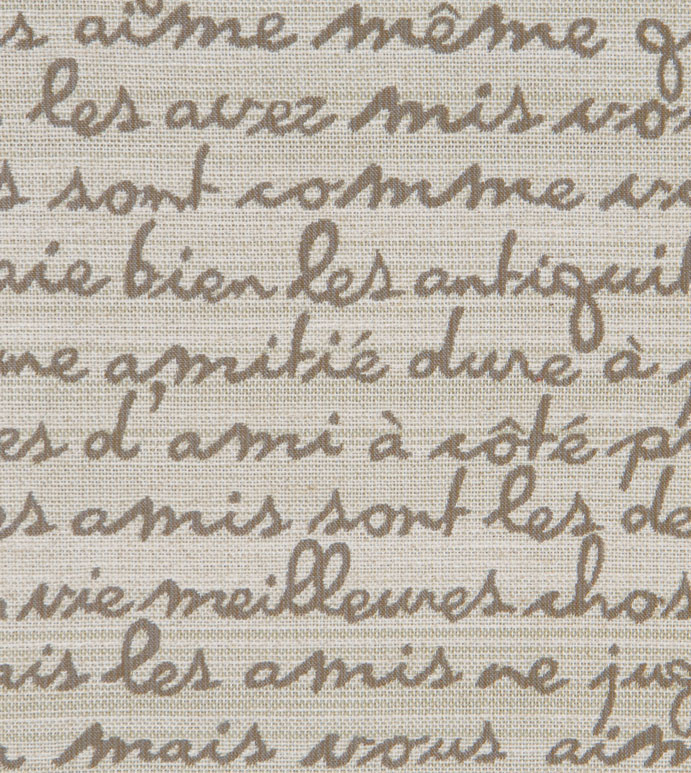 s aime même q
les avez mis vo
s sont comme v
aie bien les antiquit
une amitié dure à
es d'ami à côté p
es amis sont les de
vie meilleures chos
ais les amis ne jug
mais vous aim